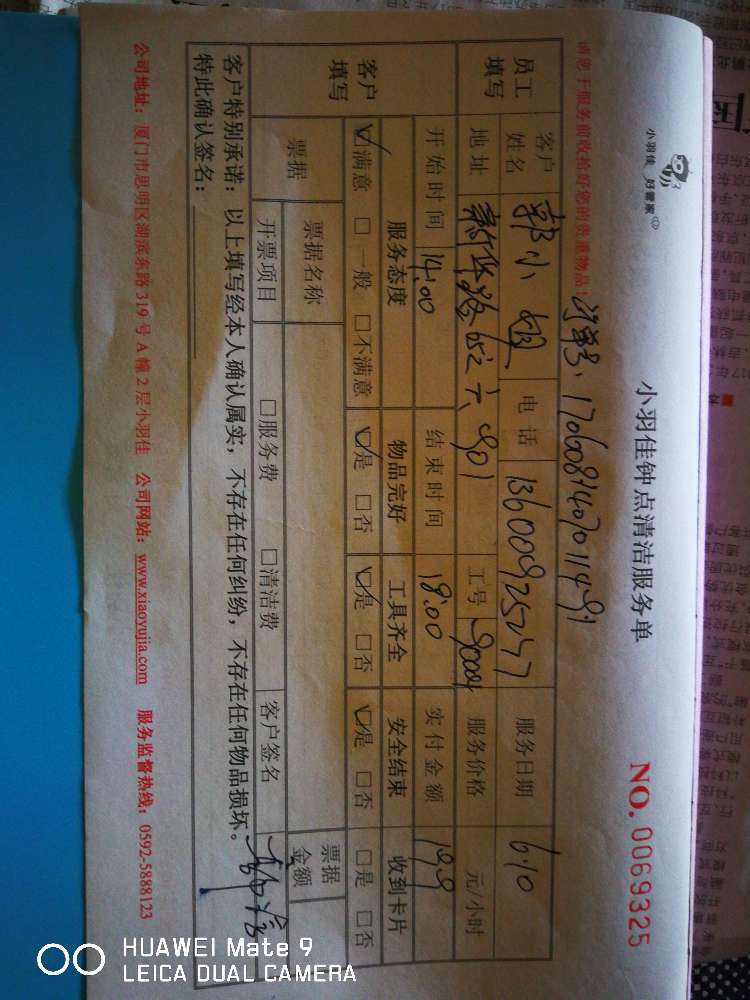 小羽佳 好管家
小羽佳钟点清洁服务单
NO. 0069325
请您于服务前收拾好您的贵重物品!
员工填写 客户姓名 郭小姐 电话 服务日期 6.10
地址 工号 90004 服务价格 元/小时
客户填写 开始时间 14:00 结束时间 18:00 实付金额 199
服务态度 物品完好 工具齐全 安全结束 收到卡片
☑满意 □一般 □不满意 ☑是 □否 ☑是 □否 ☑是 □否 □是 □否
票据 票据名称 票据金额
开票项目 □服务费 □清洁费 客户签名
客户特别承诺:以上填写经本人确认属实,不存在任何纠纷,不存在任何物品损坏。
特此确认签名:
公司地址:厦门市思明区湖滨东路 319 号 A 幢 2 层小羽佳 公司网站:www.xiaoyujia.com 服务监督热线:0592-5888123
HUAWEI Mate 9
LEICA DUAL CAMERA